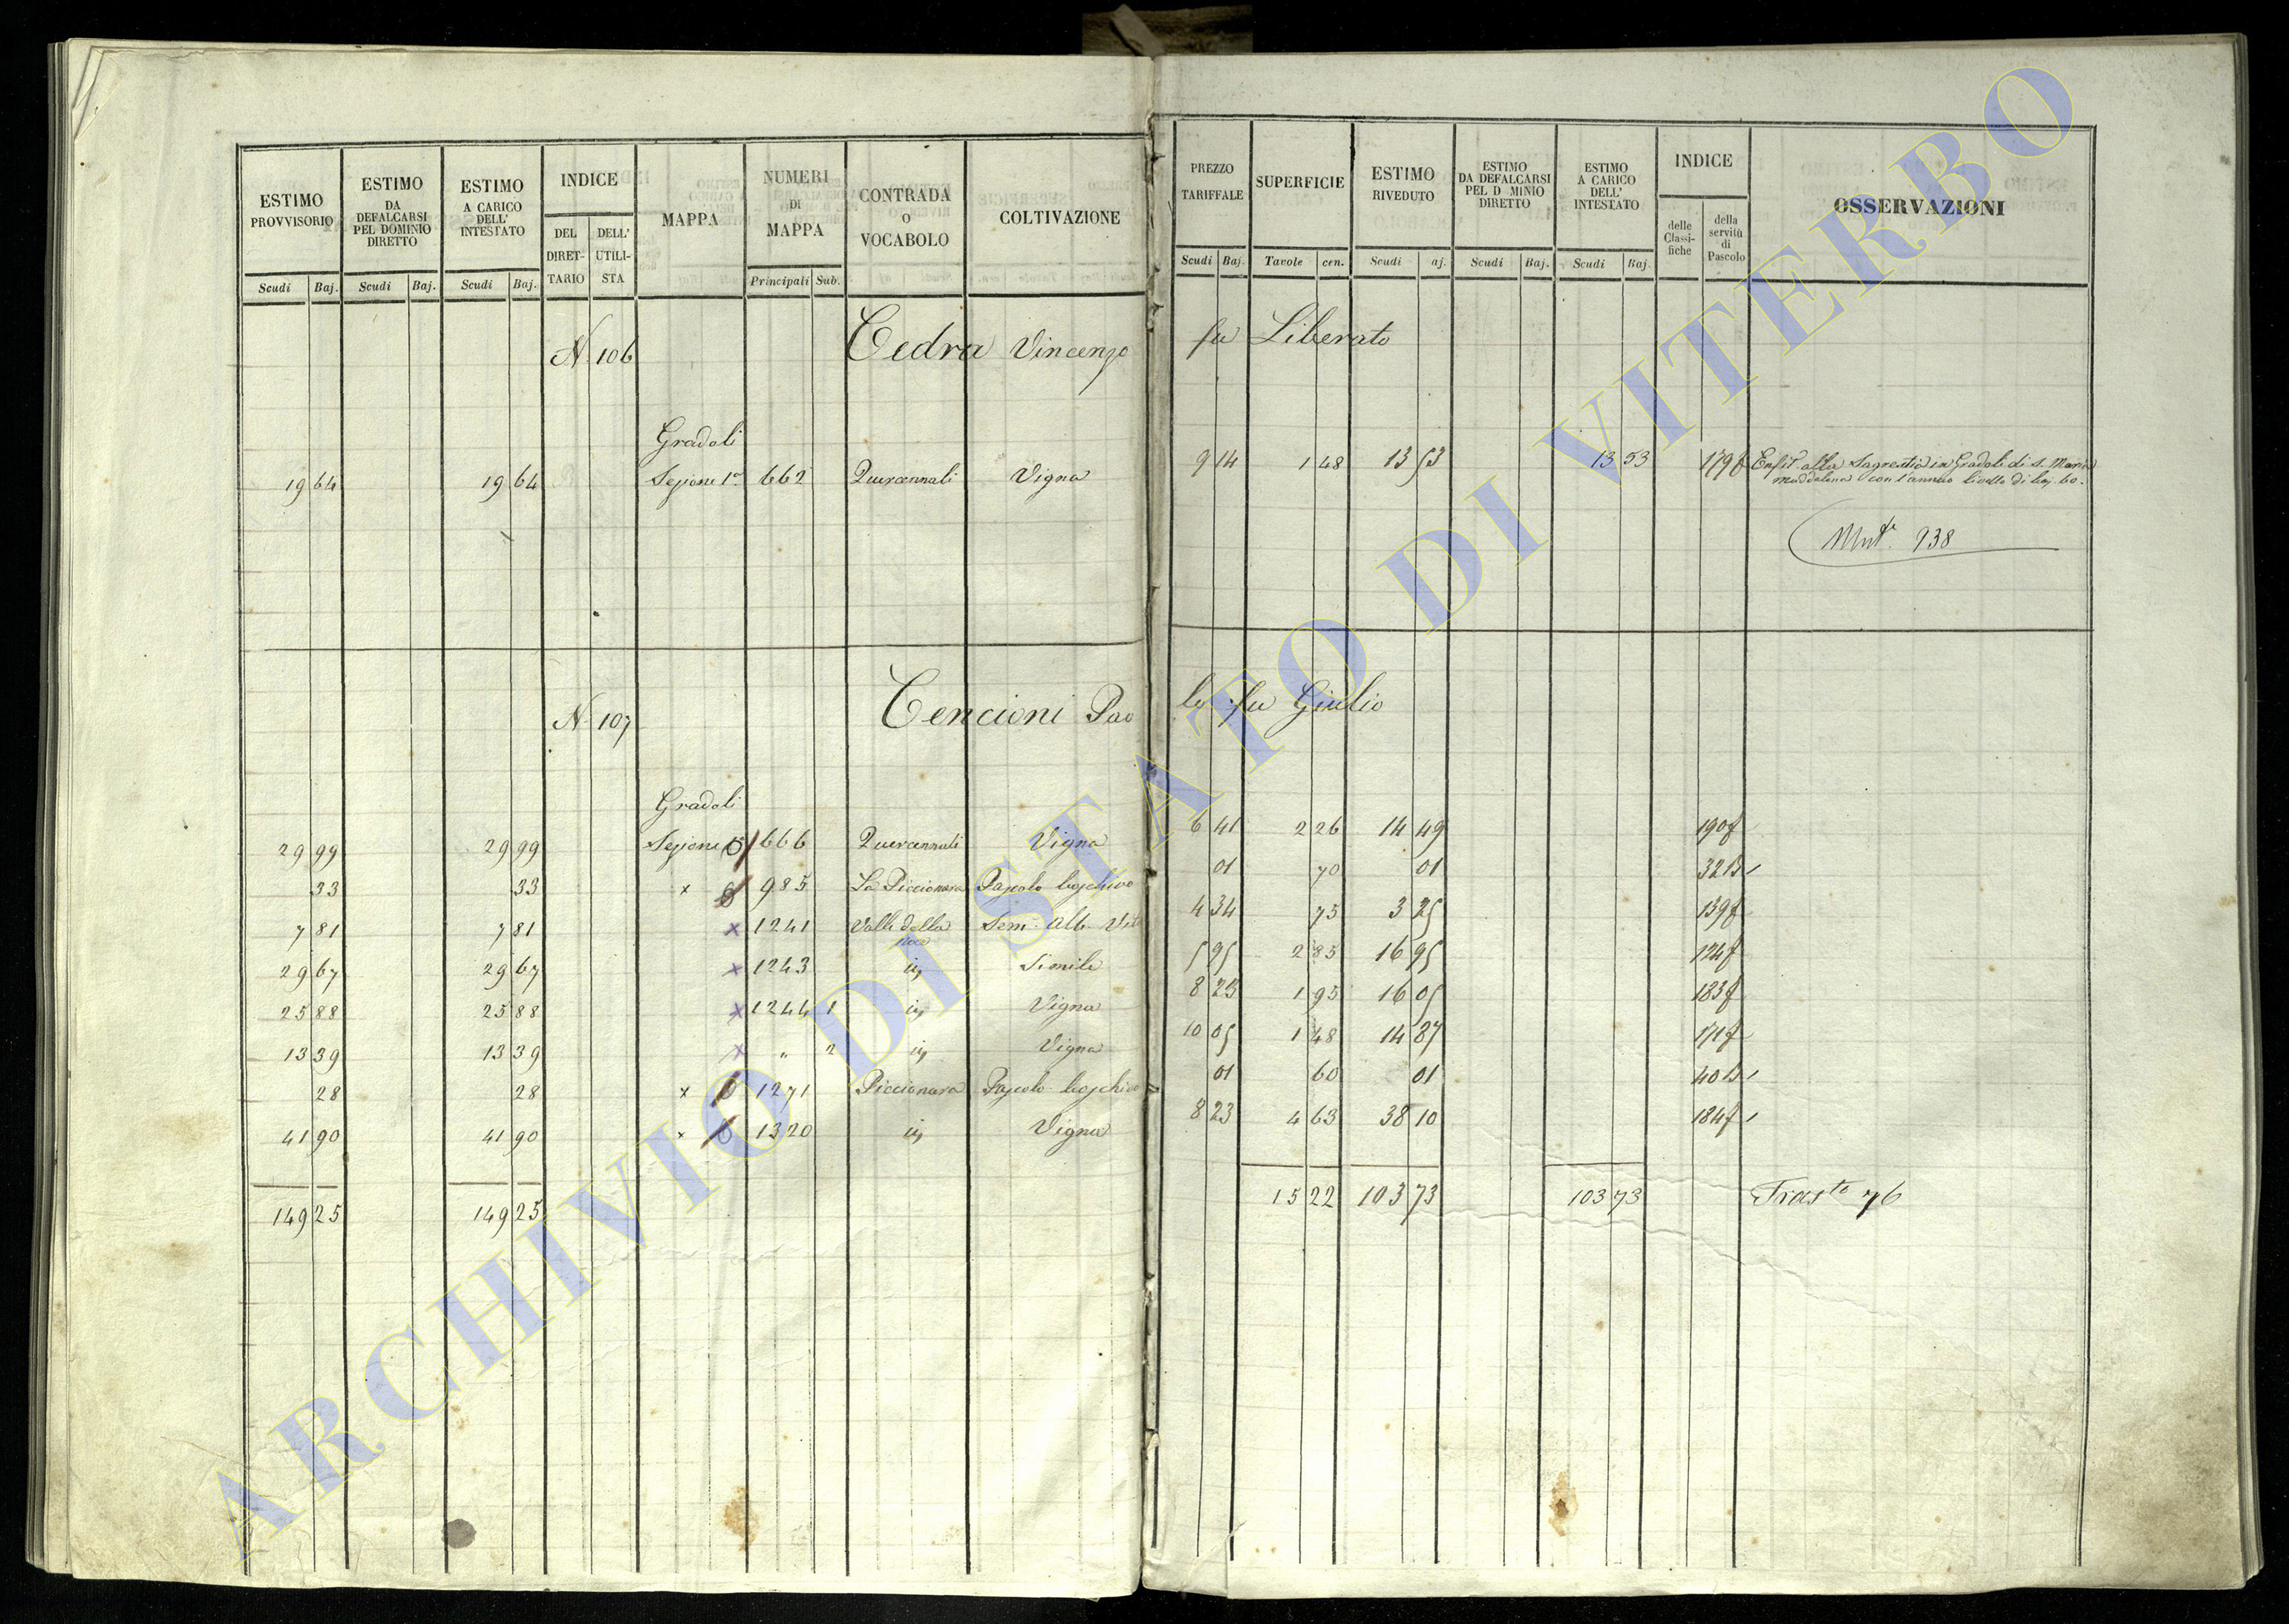 ESTIMO PROVVISORIO | ESTIMO DA DEFALCARSI PEL DOMINIO DIRETTO | ESTIMO A CARICO DELL' INTESTATO | INDICE | MAPPA | NUMERI DI MAPPA | CONTRADA O VOCABOLO | COLTIVAZIONE | PREZZO TARIFFALE | SUPERFICIE | ESTIMO RIVEDUTO | ESTIMO DA DEFALCARSI PEL D MINIO DIRETTO | ESTIMO A CARICO DELL' INTESTATO | INDICE | OSSERVAZIONI
DEL DIRET-TARIO | DELL' UTILI-STA | delle Classi-fiche | della servitù di Pascolo
Scudi | Baj. | Scudi | Baj. | Scudi | Baj. | Principali | Sub. | Scudi | Baj. | Tavole | cen. | Scudi | aj. | Scudi | Baj. | Scudi | Baj.
N 106 Cedra Vincenzo fu Liberato
Gradoli
19 64 | 19 64 | Sezione 1a | 662 | Quercennali | Vigna | 9 14 | 1 48 | 13 53 | 13 53 | 179f | alla Sagrestia in Gradoli di S. Maria
Maddalena con l'annuo livello di baj. 60.
Mut. 938
N 107 Cencioni Pao lo fu Giulio
Gradoli
29 99 | 29 99 | Sezione | 666 | Quercennali | Vigna | 6 41 | 2 26 | 14 49 | 190f
33 | 33 | x | 985 | La Piccionara | Pascolo boschivo | 01 | 70 | 01 | 32B
7 81 | 7 81 | x | 1241 | Valle della Noce | Sem. Alb. Vit | 4 34 | 75 | 3 25 | 139f
29 67 | 29 67 | x | 1243 | id | Simile | 5 95 | 2 85 | 16 95 | 124f
25 88 | 25 88 | x | 1244 | 1 | id | Vigna | 8 23 | 1 95 | 16 05 | 183f
13 39 | 13 39 | x | " | 2 | id | Vigna | 10 05 | 1 48 | 14 87 | 171f
28 | 28 | x | 1271 | Piccionara | Pascolo boschivo | 01 | 60 | 01 | 40B
41 90 | 41 90 | x | 1320 | id | Vigna | 8 23 | 4 63 | 38 10 | 184f
149 25 | 149 25 | 15 22 | 103 73 | 103 73 | Trasto 76
ARCHIVIO DI STATO DI VITERBO